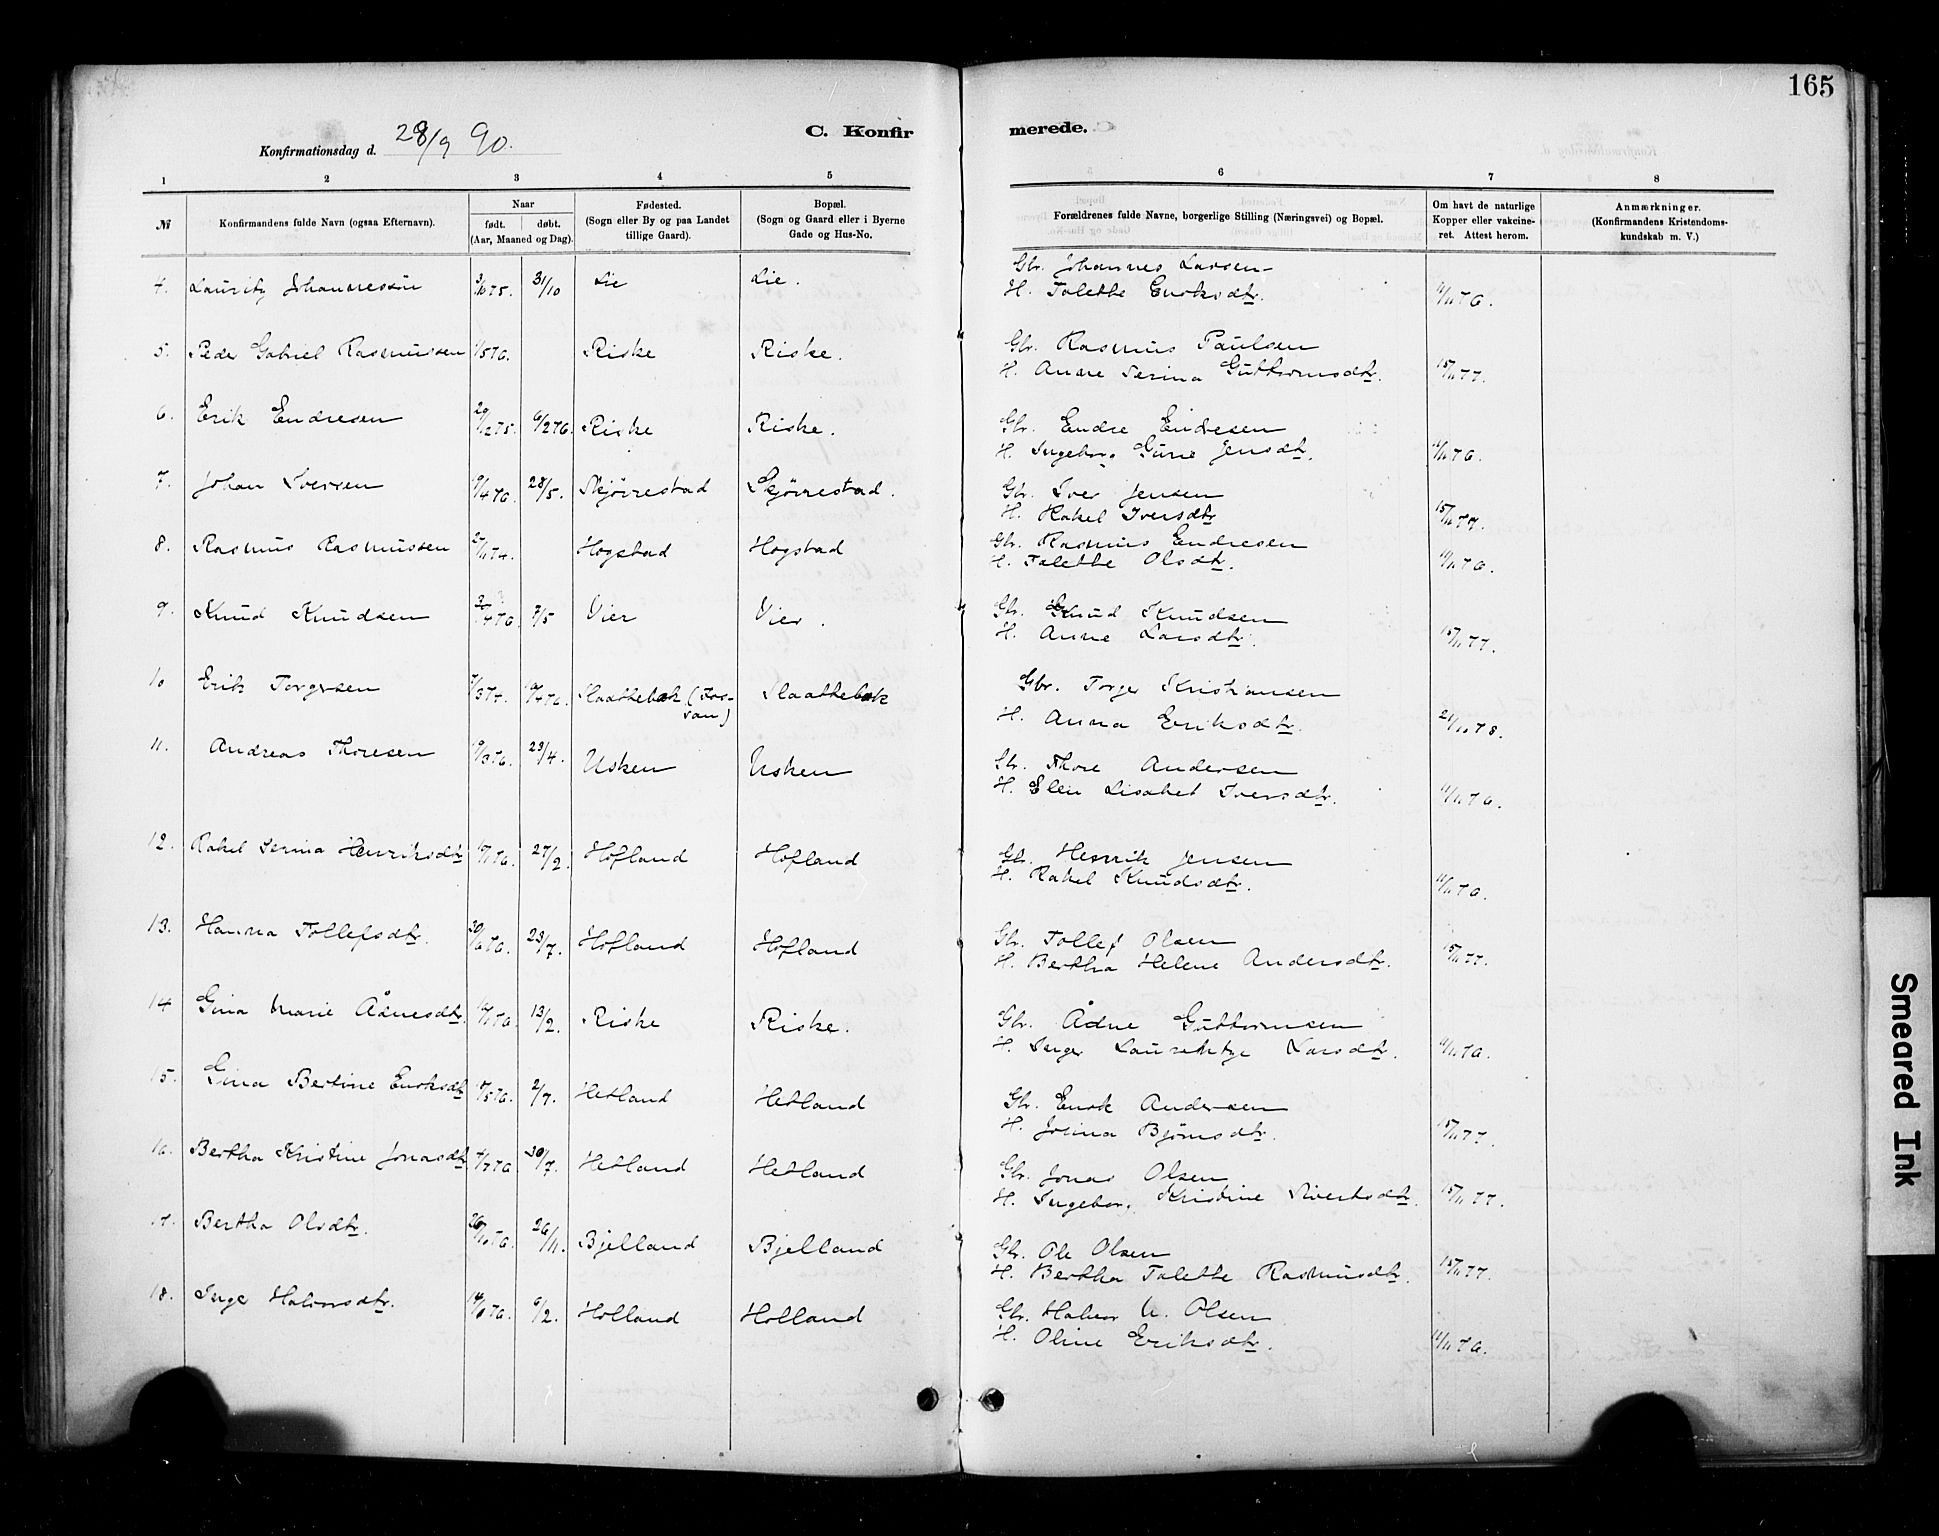 165
Konfirmationsdag d. 28/9 90.
C. Konfirmerede.
1 2 3 4 5 6 7 8
№ Konfirmandens fulde Navn (ogsaa Efternavn). Naar født. døbt. (Aar, Maaned og Dag). Fødested. (Sogn eller By og paa Landet tillige Gaard). Bopæl. (Sogn og Gaard eller i Byerne Gade og Hus-No. Forældrenes fulde Navne, borgerlige Stilling (Næringsvei) og Bopæl. Om havt de naturlige Kopper eller vakcineret. Attest herom. Anmærkninger. (Konfirmandens Kristendomskundskab m. V.)
4. Lauritz Johannessen 31/10 Lie Lie. Gbr. Johannes Larsen
H. Talette Enoksdtr. 11/11 76.
5. Peder Gabriel Rasmussen 1/5 76. Riske Riske. Gbr. Rasmus Paulsen
H. Anne Serina Guttormsdtr. 15/11 77.
6. Erik Endresen 29/12 75. 6/2 76. Riske Riske. Gbr. Endre Endresen
H. Ingeborg Gurie Jensdtr. 11/11 76.
7. Johan Iversen 9/4 76. 28/5. Skjørestad Skjørestad. Gbr. Iver Jensen
H. Rakel Iversdtr 15/11 77.
8. Rasmus Rasmussen 27/11 74. Hogstad Hogstad Gbr. Rasmus Endresen
H. Talette Olsdtr. 11/11 76.
9. Knud Knudsen 7/5 Vier Vier. Gbr. Knud Knudsen
H. Anne Larsdtr. 15/11 77.
10 Erik Torgersen 7/3 74. Slaattebæk (Forsan) Slaattebæk Gbr. Torger Kristiansen
H. Anna Eriksdtr. 21/10 78.
11. Andreas Thoresen 19/3 76. 23/4. Usken Usken Gbr. Thore Andersen
H. Elen Lisabet Iversdtr. 11/11 76.
12. Rakel Serina Henriksdtr 27/2. Hofland Hofland Gbr. Henrik Jensen
H. Rakel Knudsdtr. 11/11 76.
13. Hanna Tollefsdtr. 30/6 76. 23/7. Hofland Hofland Gbr. Tollef Olsen
H. Bertha Helene Andersdtr. 15/11 77.
14 Gina Marie Ådnesdtr. 13/2. Riske Riske. Gbr. Ådne Guttormsen
H. Inger Larsdtr. 11/11 76.
15. Gina Bertine Enoksdtr 2/7. Hetland Hetland Gbr. Enok Andersen
H. Josina Bjørnsdtr. 15/11 77.
16. Bertha Kristine Jonasdtr 4/7 76 30/7. Hetland Hetland Gbr. Jonas Olsen
H. Ingeborg Kristine Sivertsdtr. 15/11 77.
17. Bertha Olsdtr. 26/11. Bjelland Bjelland Gbr. Ole Olsen
H. Bertha Talette Rasmusdtr. 15/11 77.
18. Inger Halvorsdtr. 6/2. Holland Holland Gbr. Halvor N. Olsen
H. Oline Eriksdtr. 11/11 76.
Smeared Ink